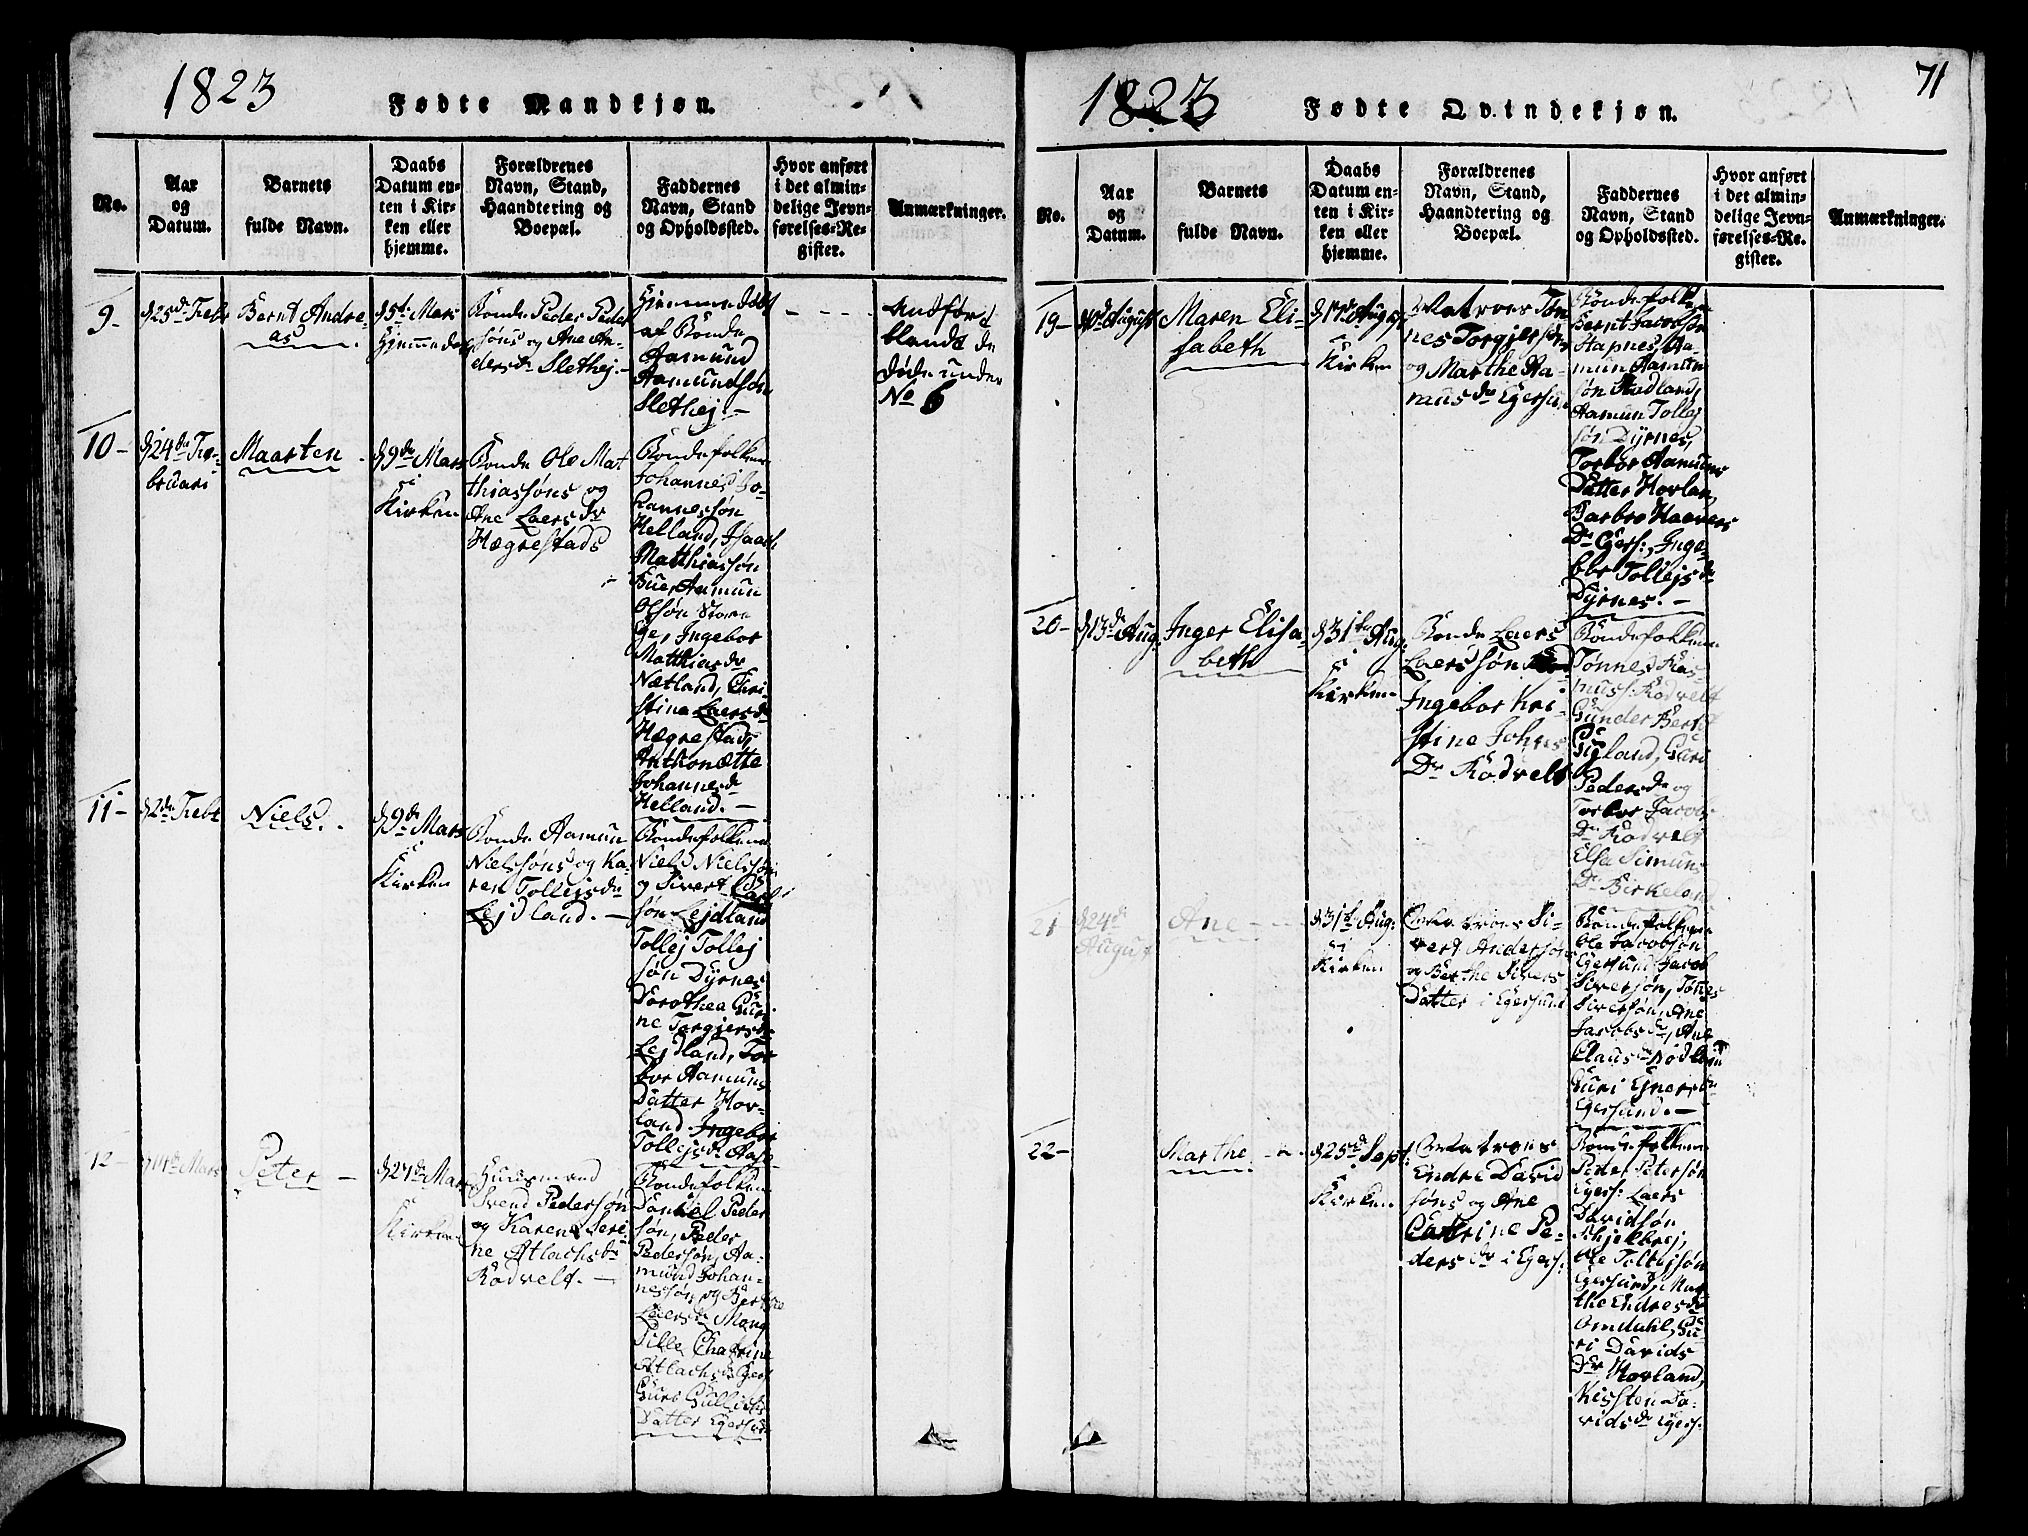 1823
Fødte Mandkjøn.
No.
Aar
og
Datum.
Barnets
fulde Navn.
Daabs
Datum en-
ten i Kir-
ken eller
hjemme.
Forældrenes
Navn, Stand,
Haandtering og
Boepæl.
Faddernes
Navn, Stand
og Opholdssted.
Hvor anført
i det almin-
delige Jevn-
førelses-Re-
gister.
Anmærkninger.
9-
d 25de Febr
Bernt Andre-
as
d 5te Mars
Hjemmedøbt
Bonde Peder Peder
søns og Ane An-
dersdr Slethej.-
Hjemmedøbt
af Bonde
Aamund
Aamundsøn
Slethej.-
Andført
blandt de
Døde under
No 6
10-
d 24de Fe-
bruari
Maarten
d 9de Mars
i
Kirken
Bonde Ole Mat
thiassøns og
Ane Laersdr
Hægrestads
Bøndefolkene
Johannes Jo-
hannessøn
Helland, Isaach
Matthiassøn
Bue, Aamun
Olsøn Store
Ge, Ingebor
Matthiasdr
Nætland, Chri
stine Laersdr
Hægrestad,
Anthonætte
Johannesdr
Helland.-
11-
d 2de Febr
Niels.
d 9de Mars
i
Kirken
Bonde Aamun
Nielssøns og Ka-
ren Tollejsdr
Lejdland.-
Bøndefolkene
Niels Nielssøn
og Sivert
søn Lejdland
Tollej Tollej
søn Dyrnes
Dorothea Guri
ne Torgjersdr
Lejdland, Tor
bor Aamuns
Datter Hov-
land Ingebor
Tollejsdr Aase
12-
d 14de Mars
Peter
d 27de Mars
i
Kirken
Huusmand
Svend Pedersøn
og Karen Seri
ne Atlachsdr
Rodvelt.-
Bøndefolkene
Daniel Peder
søn, Peder
Pedersøn, Aa-
mund Johan-
nessøn og Berthe
Laersdr Mong
Sille Chatrine
Atlachsdr Egers
Guro Gullichs
Datter Egersund
1823
Fødte Qvindekjøn.
71
No.
Aar
og
Datum.
Barnets
fulde Navn.
Daabs
Datum en-
ten i Kir-
ken eller
hjemme.
Forældrenes
Navn, Stand,
Haandtering og
Boepæl.
Faddernes
Navn, Stand
og Opholdssted.
Hvor anført
i det almin-
delige Jevn-
førelses-Re-
gister.
Anmærkninger.
19-
August
Maren Eli-
sabeth
d 17de Aug:
i
Kirken
Matroes Tøn
nes Torgjersøn
og Marthe Ra-
musdr Egersund
Bøndefolkene
Bernt Jacobsøn
Hapnes, Aa-
mun Aamun
søn Stadland,
Aamun Tollej
søn Dyrnes,
Torbor Aamuns
Datter Hovlan,
Barbro Haavers
Dr Egers:, Inge-
bor Tollejsdr
Dyrnes.-
20-
d 13de Aug:
Inger Elisa-
beth
d 31te Aug:
i
Kirken
Bonde Laers
Laerssøn
Ingebor Kri
stine Johns
Dr Rodvelt
Bøndefolkene
Tønnes Ras
muss: Rodvelt
Gunder Bernt
Dr
Guri
Pedersdr og
Torbor Jacobs
Dr Rodvelt
Elsa Simuns
Dr Birkeland
21
d 24de
August
Ane
d 31te Aug:
i
Kirken
Matroes Si-
vert Andersøn
og Berthe Sivers
Datter i Egersund
Bøndefolkene
Ole Jacobsøn
Egersund, Jacob
Siversøn, Tønnes
Siversøn, Ane
Jacobsdr, Ane
Clausdr
Guri Ejnersdr
Egersund.-
22-
Marthe
d 25de Sept:
i
Kirken
Matroes
Endre David
søns og Ane
Cathrine Pe-
dersdr i Egers:
Bøndefolkene
Peder Petersøn
Egers: Laers
Davidsøn
Skjelbrej,
Ole Tollejsøn
Egersund, Mar
the Endresdr
Omdahl, Gu
ri Davids
Dr Hovland,
Kirsten Da-
vidsdr Egers: